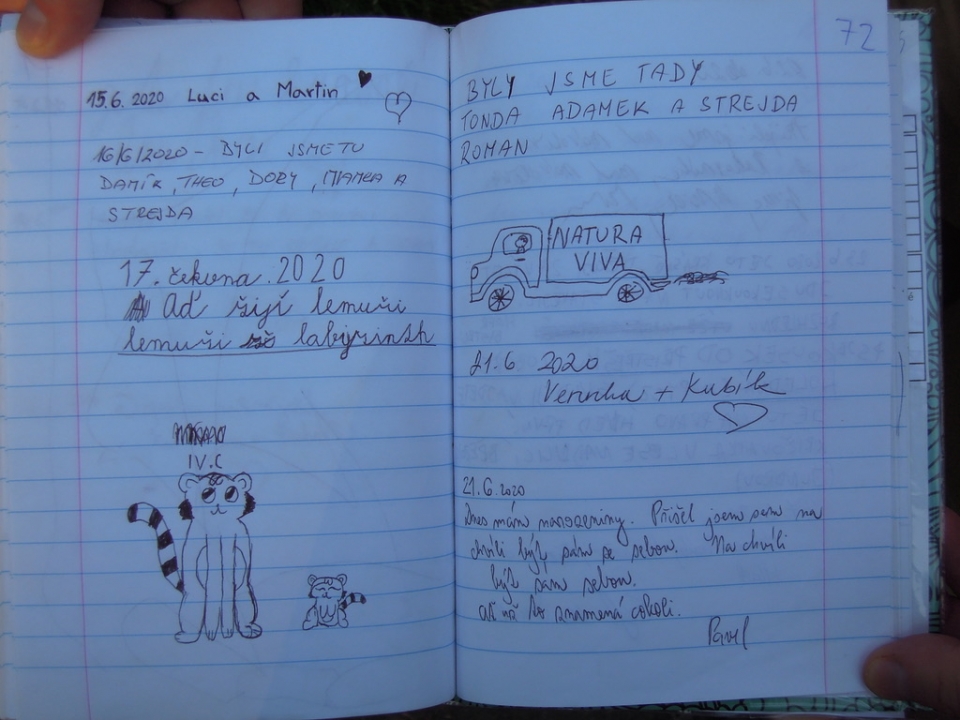 15.6. 2020 Luci a Martin
16/6/2020 - BYLI JSME TU
DAMÍK, THEO, DOBY, MAMKA A
STREJDA
17. čekvna. 2020
Ať žijí lemuři
lemuři labyrinth
IV.C
72
BYLY JSME TADY
TONDA ADAMEK A STREJDA
ROMAN
NATURA
VIVA
21.6 2020
Verunka + Kubík
21.6.2020
Dnes mám narozeniny. Přišel jsem sem na
chvíli být sám se sebou. Na chvíli
být sám sebou.
ať už to znamená cokoli.
Pavel